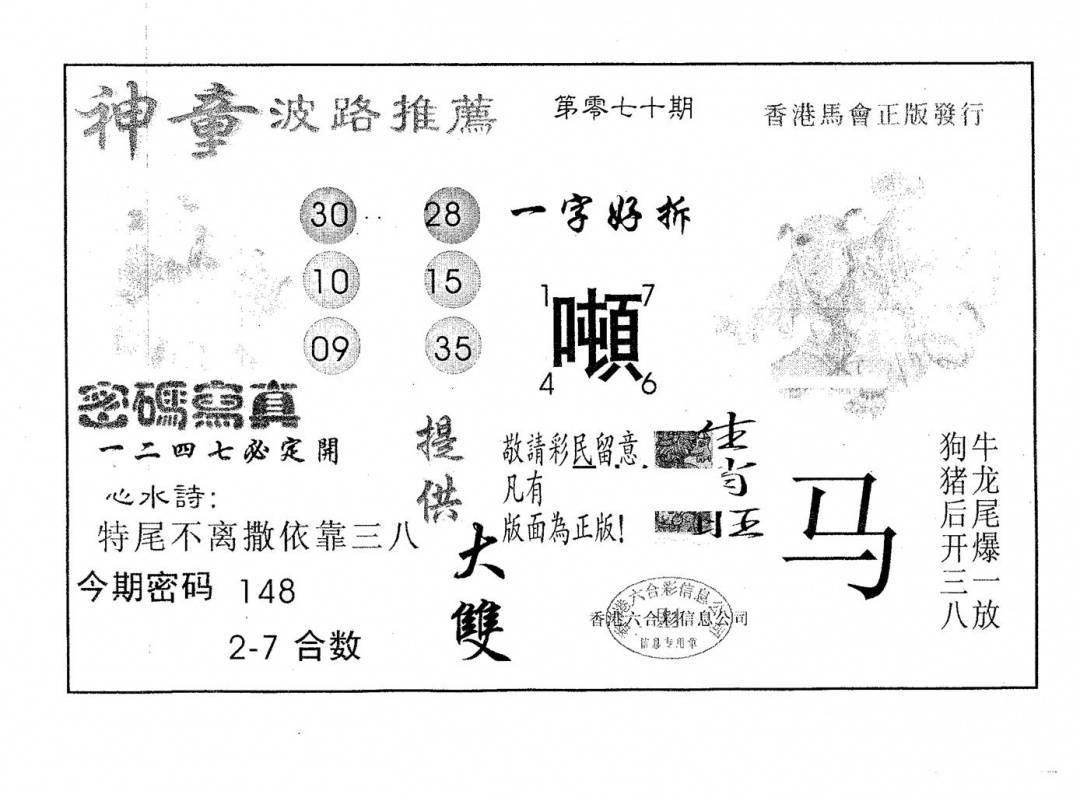 神童波路推薦
第零七十期
香港馬會正版發行
30 28
10 15
09 35
一字好拆
1 7
噸
4 6
密碼寫真
一二四七必定開
心水詩:
特尾不离撒依靠三八
今期密码 148
2-7 合数
提供
大雙
敬請彩民留意
凡有
版面為正版!
马
牛龙尾爆一放
狗猪后开三八
香港六合彩信息公司
信息专用章